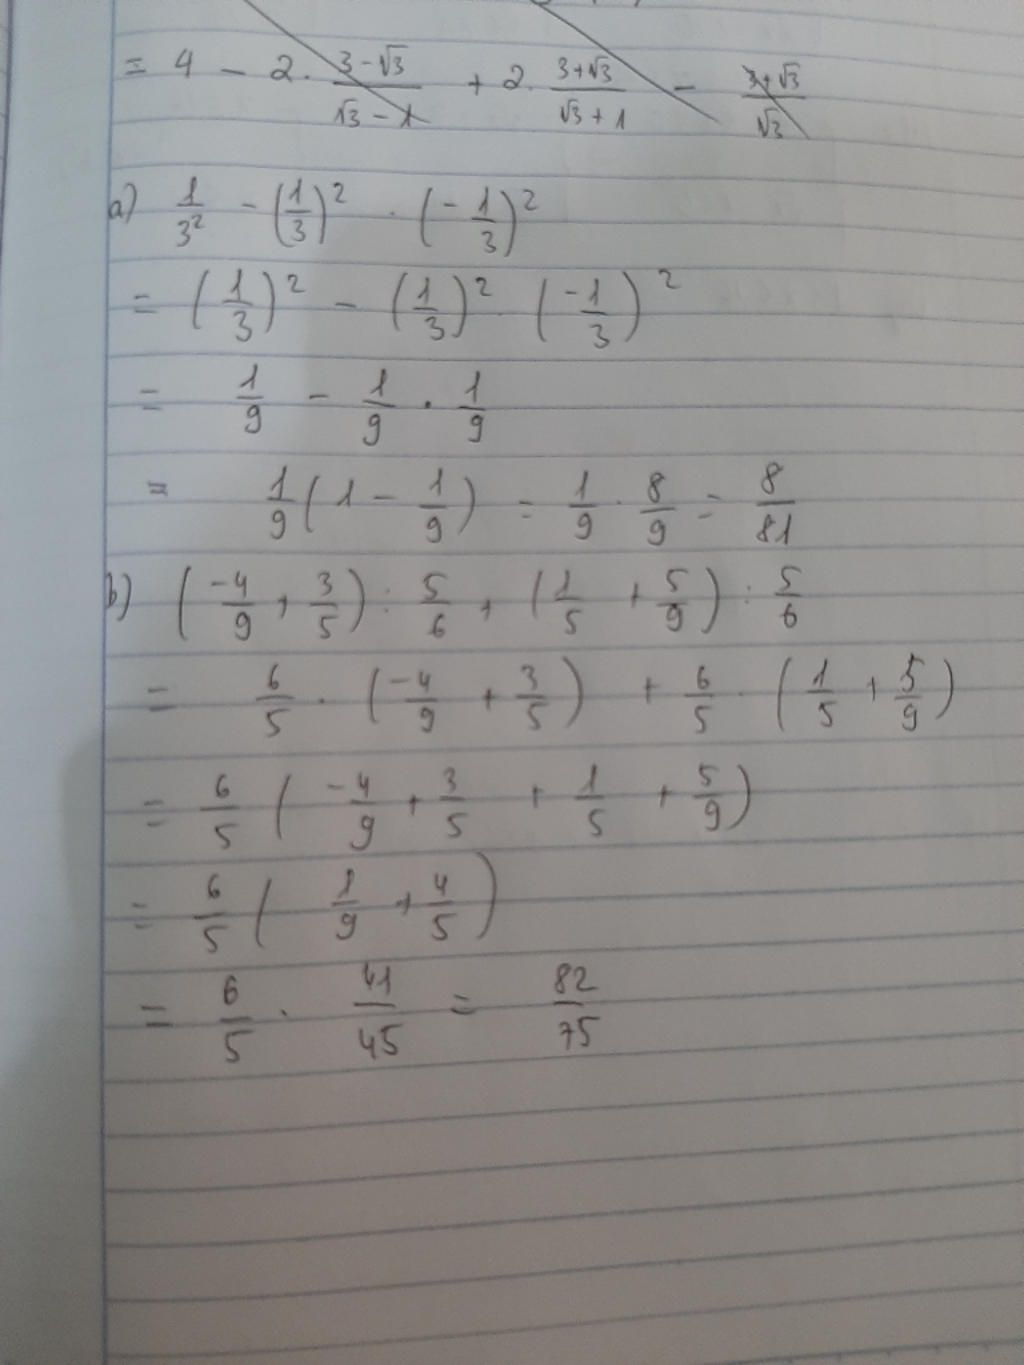 = 4 - 2. (3-√3)/(√3-1) + 2. (3+√3)/(√3+1) - (3+√3)/√3
a) 1/3² - (1/3)² . (-1/3)²
= (1/3)² - (1/3)² . (-1/3)²
= 1/9 - 1/9 . 1/9
= 1/9 (1 - 1/9) = 1/9 . 8/9 = 8/81
b) (-4/9 + 3/5) : 5/6 + (1/5 + 5/9) : 5/6
= 6/5 . (-4/9 + 3/5) + 6/5 . (1/5 + 5/9)
= 6/5 (-4/9 + 3/5 + 1/5 + 5/9)
= 6/5 (1/9 + 4/5)
= 6/5 . 41/45 = 82/75